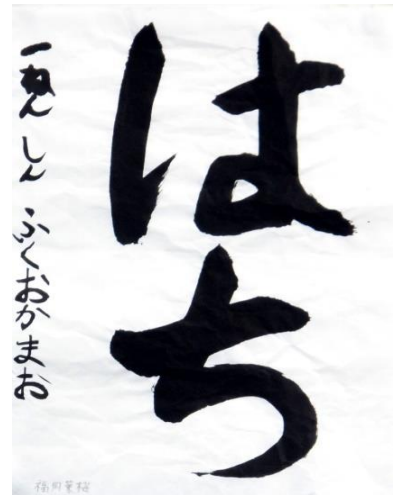 はち
一ねん しん ふくおかまお